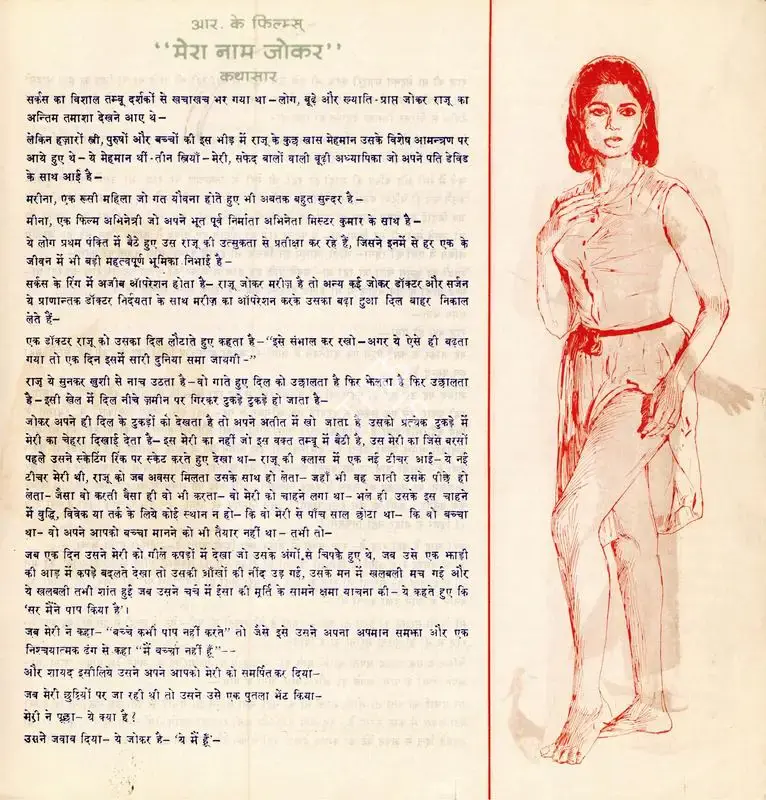 आर. के फिल्म्स्
“मेरा नाम जोकर”
कथासार
सर्कस का विशाल तम्बू दर्शकों से खचाखच भर गया था – लोग, बूढ़े और ख्याति-प्राप्त जोकर राजू का
अन्तिम तमाशा देखने आए थे –
लेकिन हज़ारों स्त्री, पुरुषों और बच्चों की इस भीड़ में राजू के कुछ खास मेहमान उसके विशेष आमन्त्रण पर
आये हुए थे – ये मेहमान थीं - तीन स्त्रियाँ - मेरी, सफेद बालों वाली बूढ़ी अध्यापिका जो अपने पति डेविड
के साथ आई है –
मरीना, एक रूसी महिला जो गत यौवना होते हुए भी अबतक बहुत सुन्दर है –
मीना, एक फिल्म अभिनेत्री जो अपने भूत पूर्व निर्माता अभिनेता मिस्टर कुमार के साथ है –
ये लोग प्रथम पंक्ति में बैठे हुए उस राजू की उत्सुकता से प्रतीक्षा कर रहे हैं, जिसने इनमें से हर एक के
जीवन में भी बड़ी महत्वपूर्ण भूमिका निभाई है –
सर्कस के रिंग में अजीब ऑपरेशन होता है – राजू जोकर मरीज़ है तो अन्य कई जोकर डॉक्टर और सर्जन
ये प्राणान्तक डॉक्टर निर्दयता के साथ मरीज़ का ऑपरेशन करके उसका बढ़ा हुआ दिल बाहर निकाल
लेते हैं –
एक डॉक्टर राजू को उसका दिल लौटाते हुए कहता है – “इसे संभाल कर रखो – अगर ये ऐसे ही बढ़ता
गया तो एक दिन इसमें सारी दुनिया समा जायगी -”
राजू ये सुनकर खुशी से नाच उठता है – वो गाते हुए दिल को उछालता है फिर झेलता है फिर उछालता
है – इसी खेल में दिल नीचे ज़मीन पर गिरकर टुकड़े टुकड़े हो जाता है –
जोकर अपने ही दिल के टुकड़ों को देखता है तो अपने अतीत में खो जाता है उसको प्रत्येक टुकड़े में
मेरी का चेहरा दिखाई देता है – इस मेरी का नहीं जो इस वक्त तम्बू में बैठी है, उस मेरी का जिसे बरसों
पहले उसने स्केटिंग रिंक पर स्केट करते हुए देखा था – राजू की क्लास में एक नई टीचर आई – ये नई
टीचर मेरी थी, राजू को जब अवसर मिलता उसके साथ हो लेता – जहाँ भी वह जाती उसके पीछे हो
लेता – जैसा वो करती वैसा ही वो भी करता – वो मेरी को चाहने लगा था – भले ही उसके इस चाहने
में बुद्धि, विवेक या तर्क के लिये कोई स्थान न हो – कि वो मेरी से पाँच साल छोटा था – कि वो बच्चा
था – वो अपने आपको बच्चा मानने को भी तैयार नहीं था – तभी तो –
जब एक दिन उसने मेरी को गीले कपड़ों में देखा जो उसके अंगों से चिपके हुए थे, जब उसे एक झाड़ी
की आड़ में कपड़े बदलते देखा तो उसकी आँखों की नींद उड़ गई, उसके मन में खलबली मच गई और
ये खलबली तभी शांत हुई जब उसने चर्च में ईसा की मूर्ति के सामने क्षमा याचना की – ये कहते हुए कि
‘सर मैंने पाप किया है’।
जब मेरी ने कहा – “बच्चे कभी पाप नहीं करते” तो जैसे इसे उसने अपना अपमान समझा और एक
निश्चयात्मक ढंग से कहा “मैं बच्चा नहीं हूँ” --
और शायद इसीलिये उसने अपने आपको मेरी को समर्पित कर दिया –
जब मेरी छुट्टियों पर जा रही थी तो उसने उसे एक पुतला भेंट किया –
मेरी ने पूछा – ये क्या है ?
उसने जवाब दिया – ये जोकर है – ‘ये मैं हूँ’ –